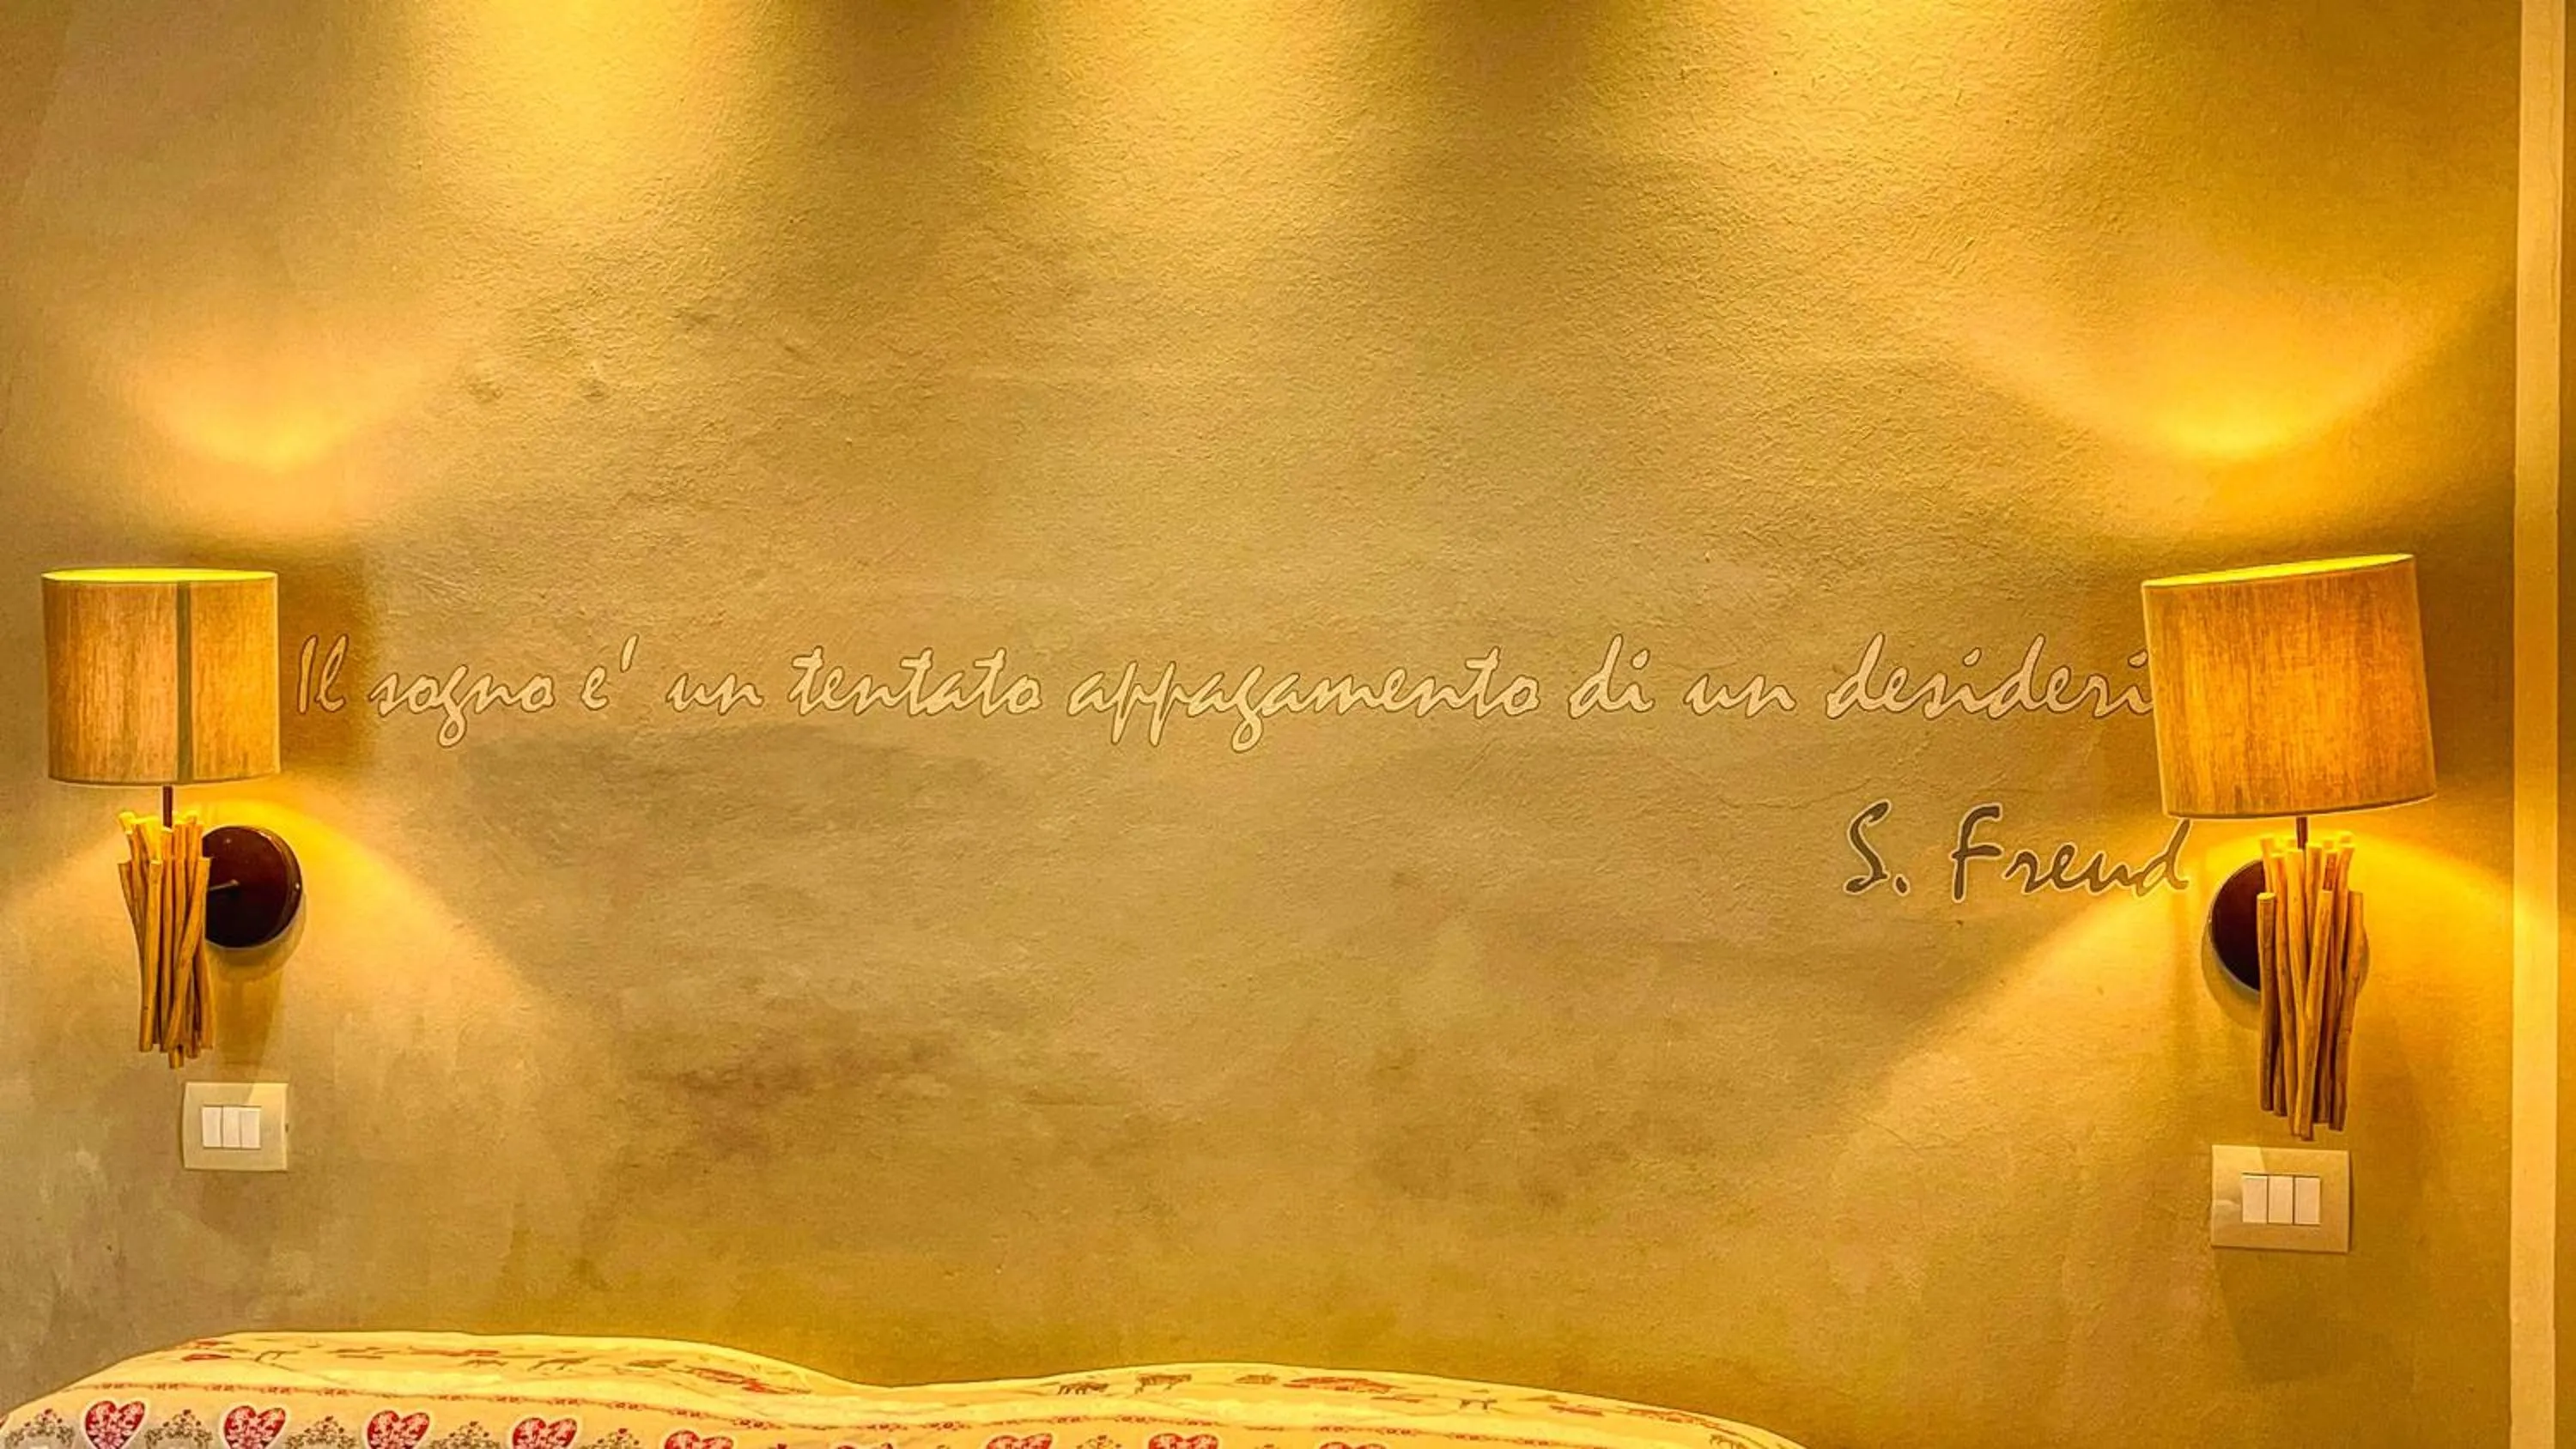 Il sogno e' un tentato appagamento di un desideri
S. Freud